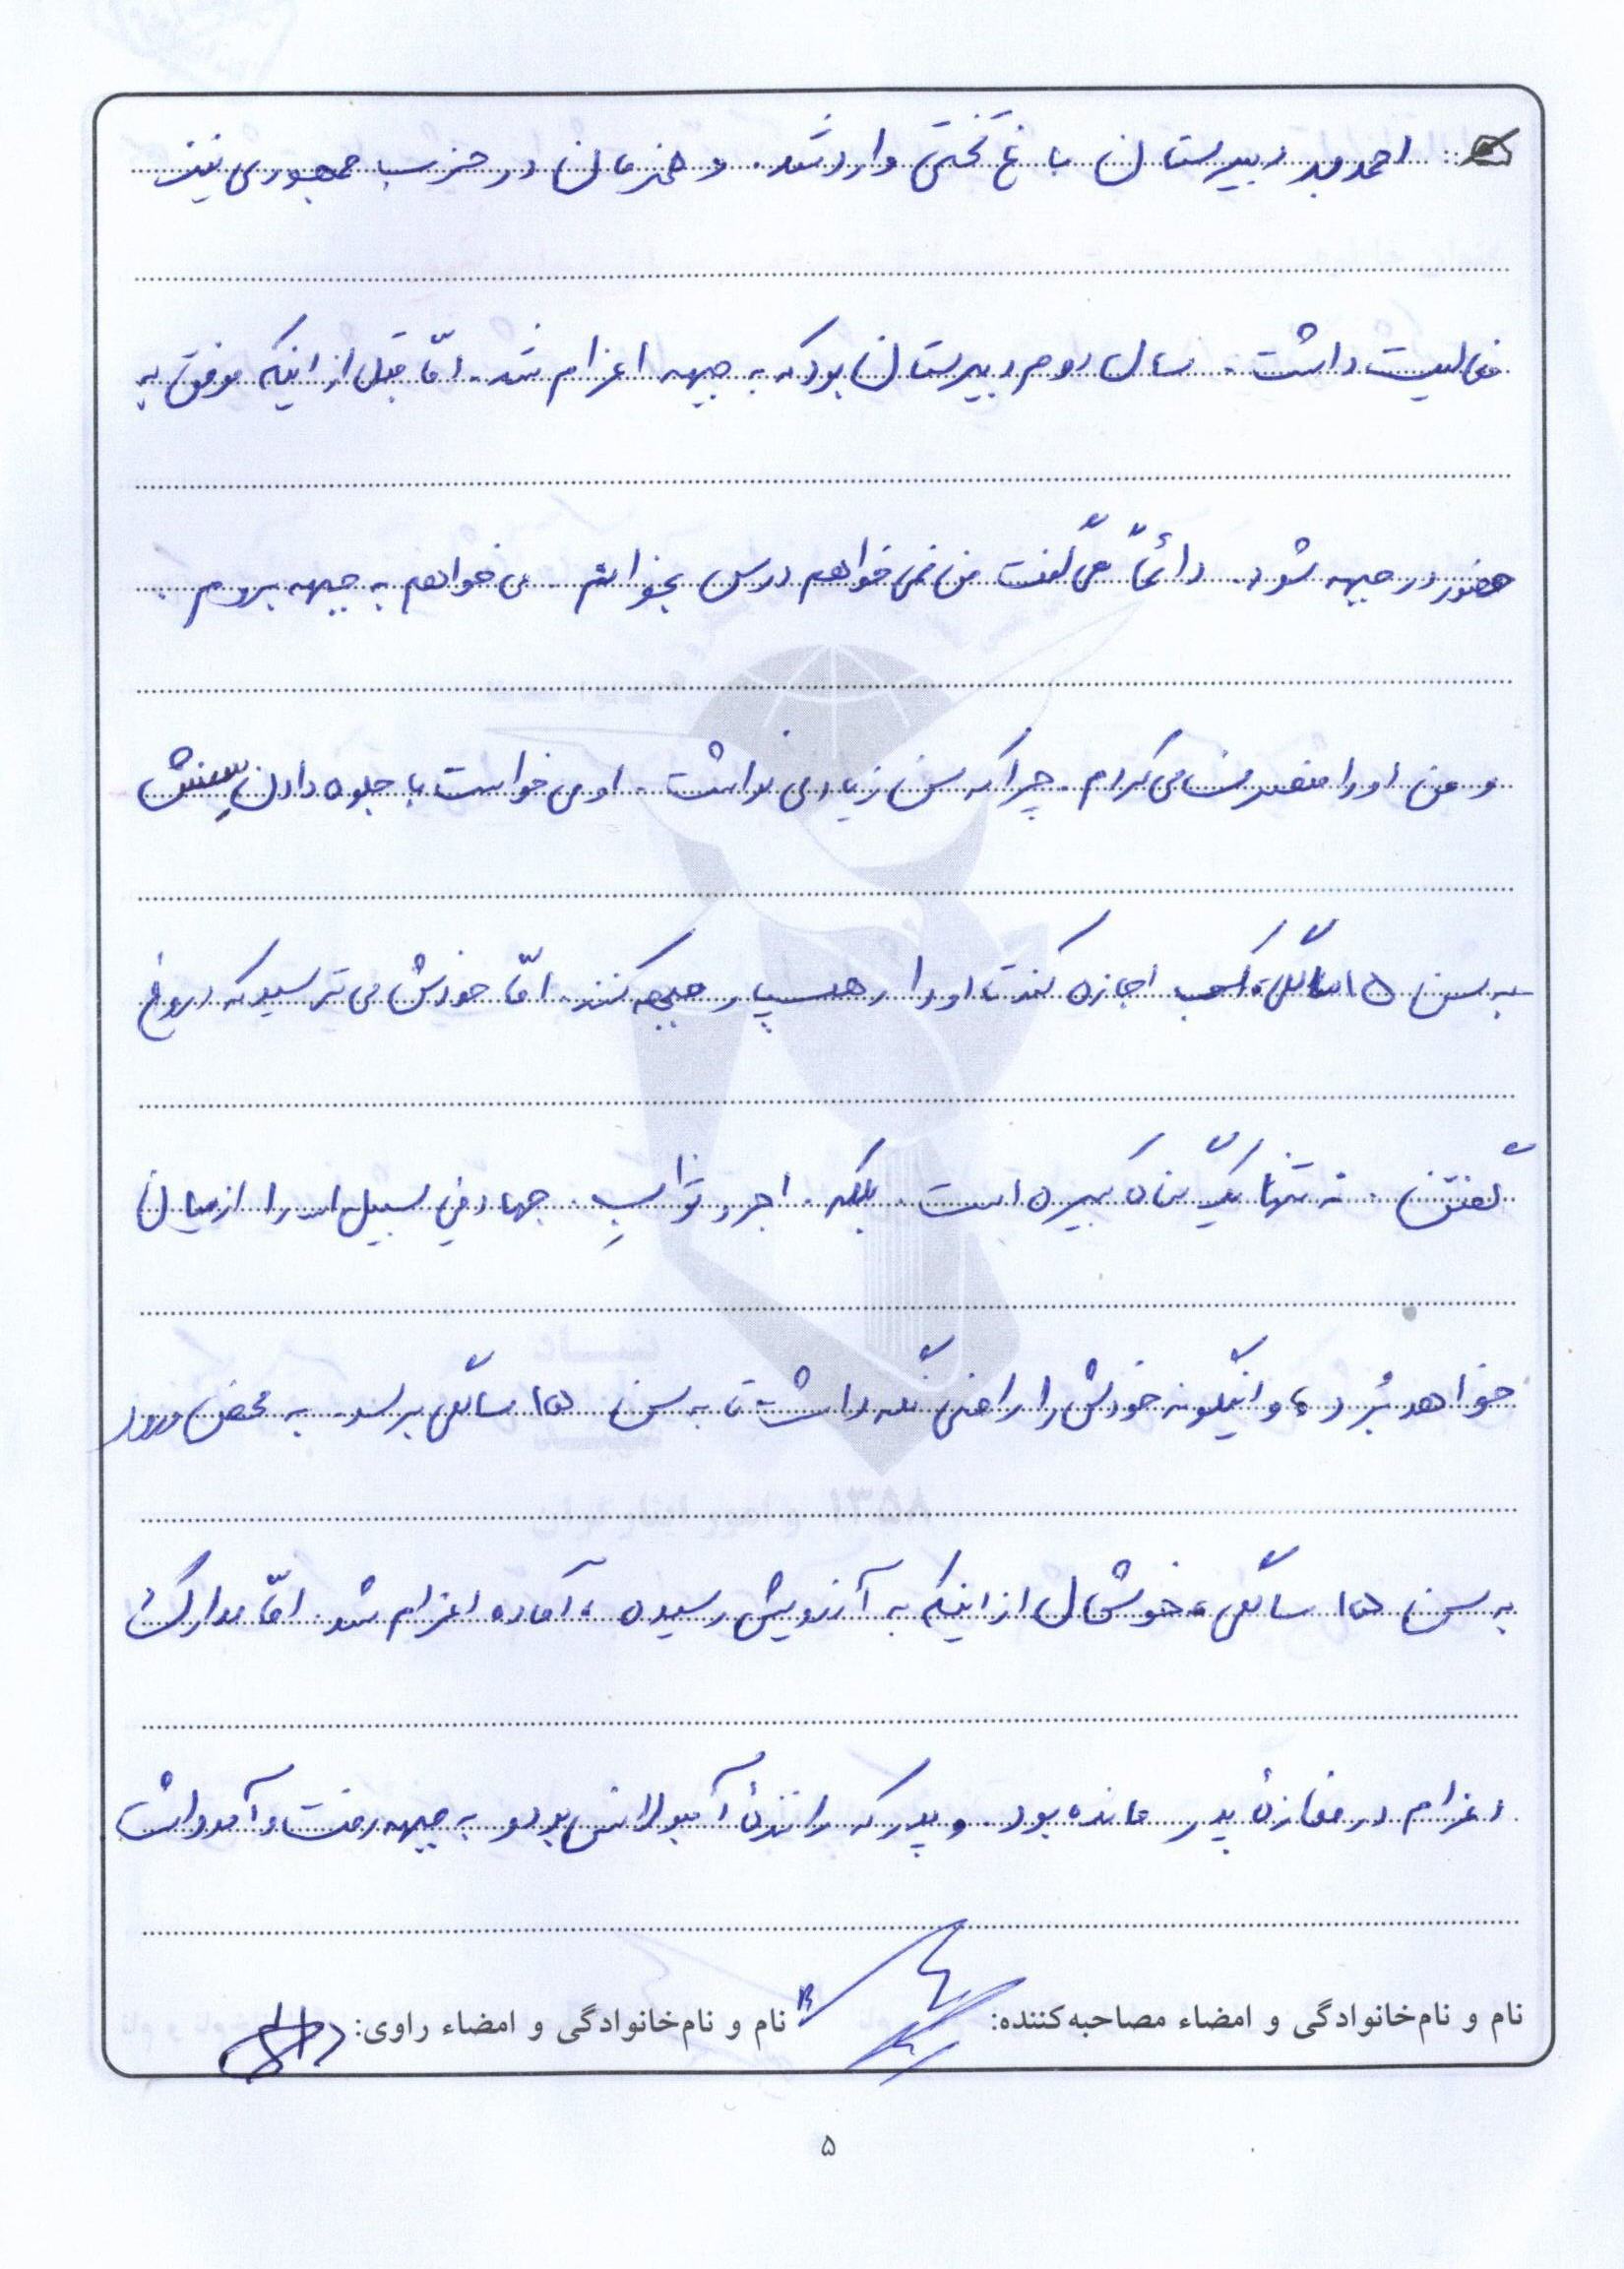 احمد به دبیرستان باغ تختی وارد شد. و همزمان در حزب جمهوری نیز
فعالیت داشت. سال دوم دبیرستان بود که به جبهه اعزام شد. امّا قبل از اینکه موفق به
حضور در جبهه شود. دائماً می گفت من نمی خواهم درس بخوانم. می خواهم به جبهه بروم.
و من او را منصرف می کردم. چرا که سن زیادی نداشت. او می خواست با جلوه دادن سِنش
به سن ۱۵ سالگی، کسب اجازه کند تا او را رهسپار جبهه کنند. امّا خودش می ترسید که دروغ
گفتن. نه تنها یک گناه کبیره است. بلکه. اجر و ثوابِ. جهاد في سبیل الله را از میان
خواهد بُرد، و اینگونه خودش را راضی نگه داشت تا به سن ۱۵ سالگی برسد. به محض ورود
به سن ۱۵ سالگی، خوشحال از اینکه به آرزویش رسیده، آماده اعزام شد. امّا مدارک
اعزام در مغازهٔ پدر مانده بود. و پدر که رانندهٔ آمبولانس بود و به جبهه رفت و آمد داشت
نام و نام‌خانوادگی و امضاء مصاحبه‌کننده:
نام و نام‌خانوادگی و امضاء راوی:
۵